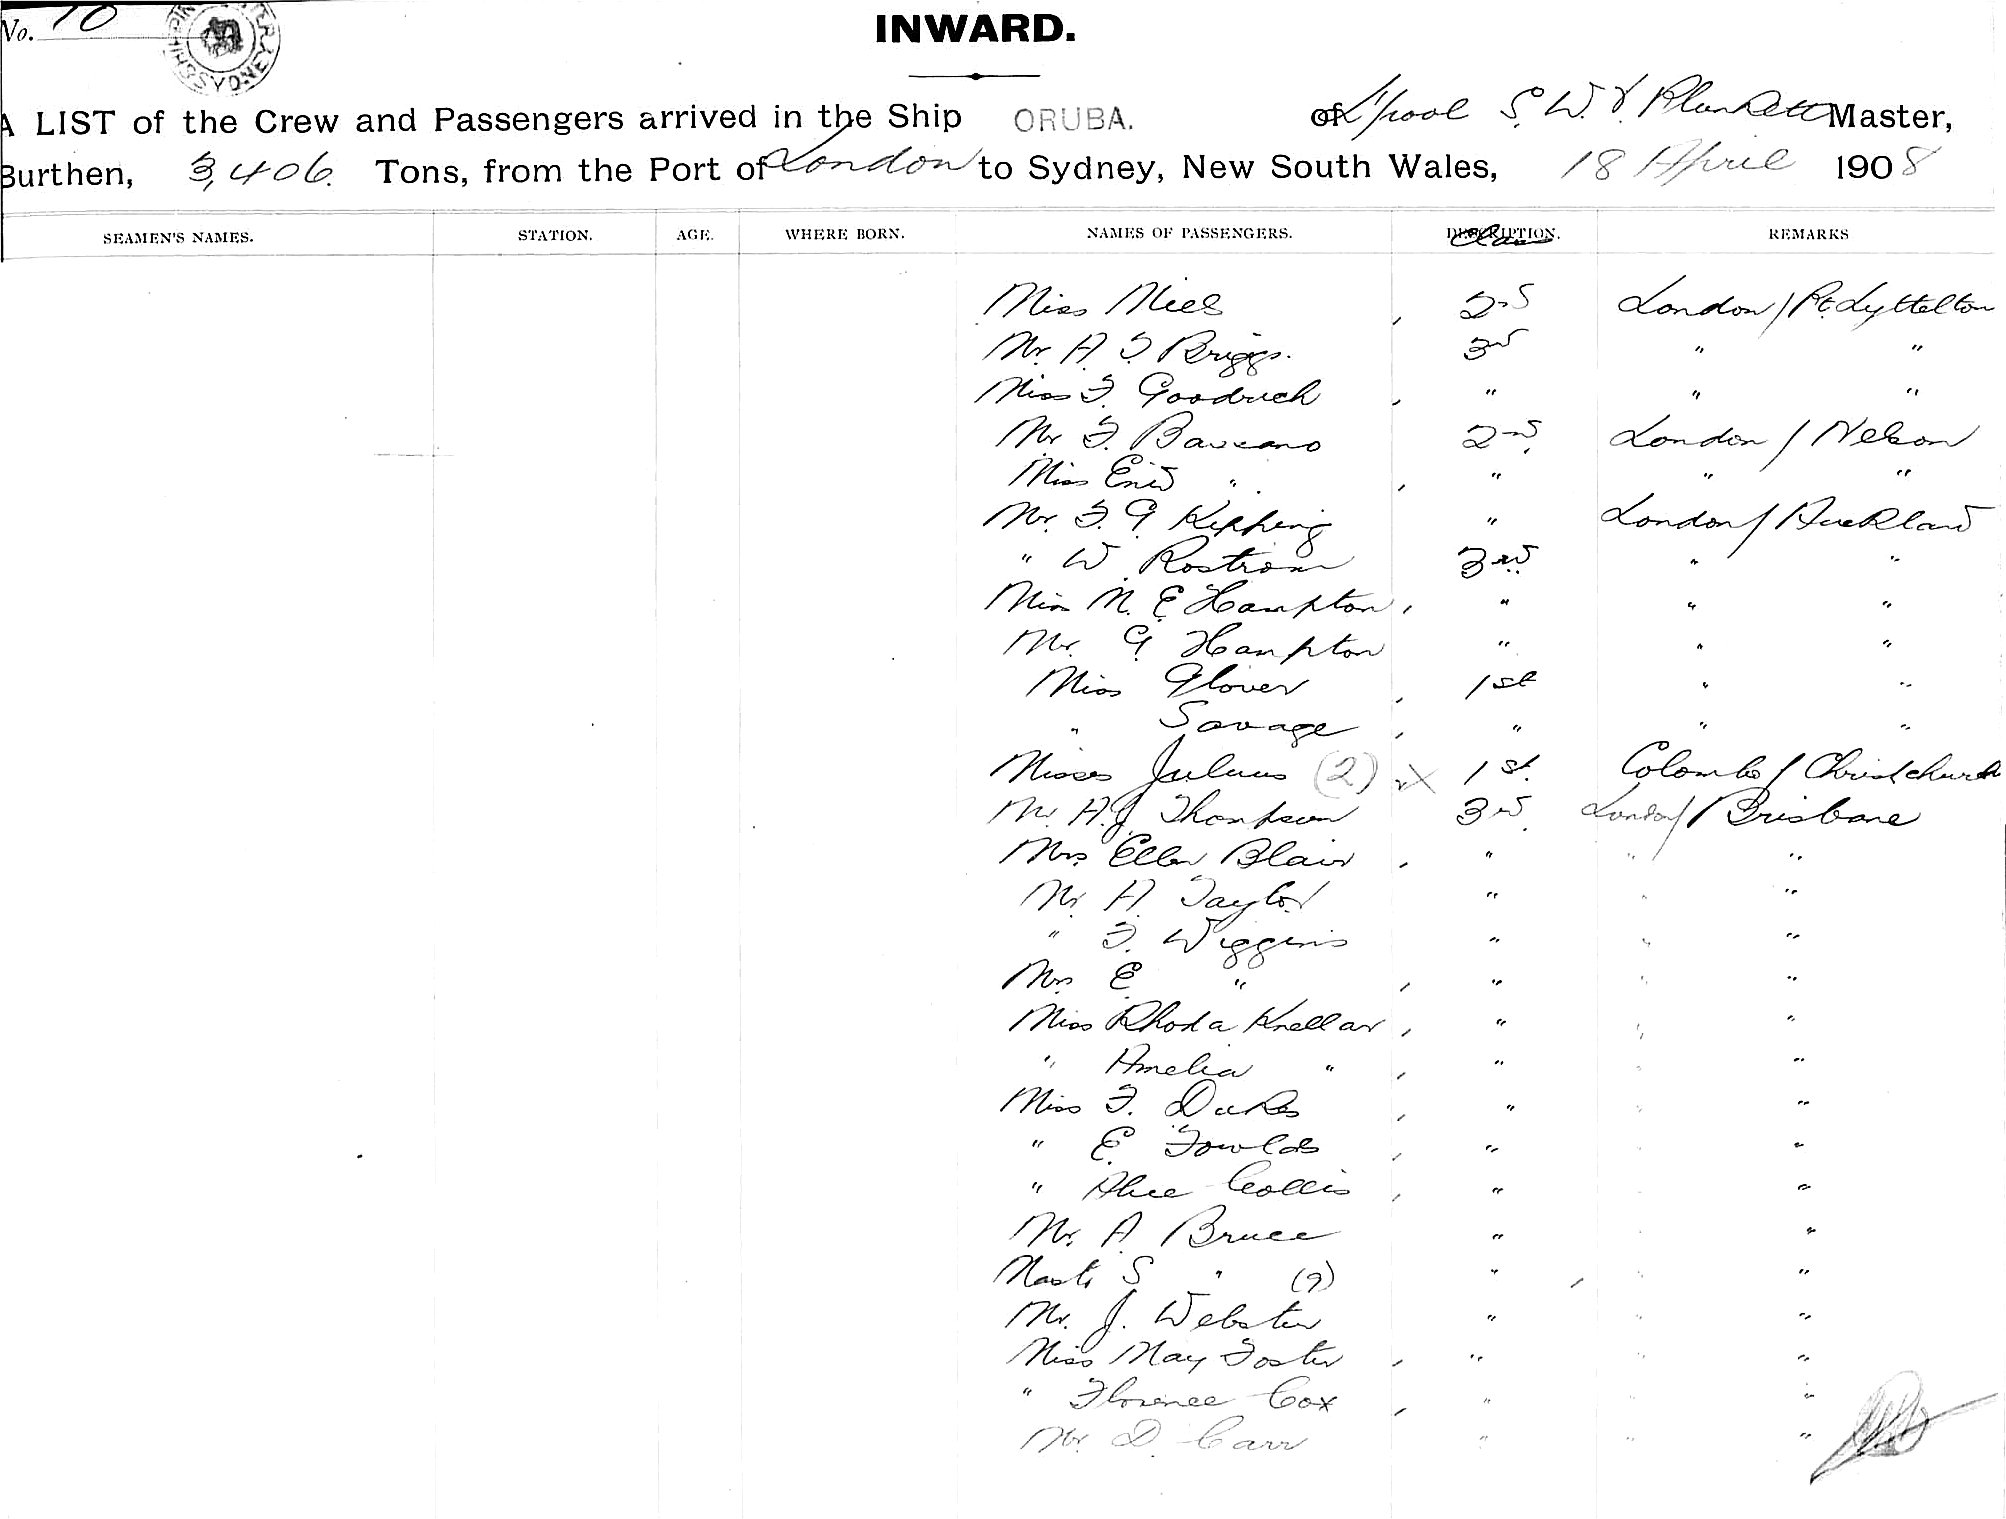 No. 10
SHIPPING SYDNEY
INWARD.
A LIST of the Crew and Passengers arrived in the Ship ORUBA. of L'pool S. W. Plunkett Master,
Burthen, 3,406. Tons, from the Port of London to Sydney, New South Wales, 18 April 1908
SEAMEN'S NAMES. STATION. AGE. WHERE BORN. NAMES OF PASSENGERS. DESCRIPTION. Class REMARKS
Miss , 2nd London / Pt. Lyttelton
Mr. A. F Briggs. 3rd " "
Miss F. Goodrich , " " "
Mr F. 2nd London / Nelson
Miss Enid " , " " "
Mr. F. G Kipping " London / Auckland
" W. Rostrom 3rd " "
Miss M. E. Hampton , " " "
Mr. G. Hampton " " "
Miss Glover , 1st " "
" Savage , " " "
Misses Julius (2) x 1st. Colombo / Christchurch
Mr. A. J. Thompson 3rd London / Brisbane
Mrs Ellen Blair , " " "
Mr A. Taylor " " "
" F. Wiggins " " "
Mrs E. " , " " "
Miss Rhoda Knellar , " " "
" Amelia " , " " "
Miss F. Dukes , " " "
" E. Fowlds , " "
" Alice Collis , " "
Mr. A. Bruce " "
Mastr S " (9) " , "
Mr. J. Webster " "
Miss May Foster , " " "
" Florence Cox , " " "
Mr. D. Carr " " "